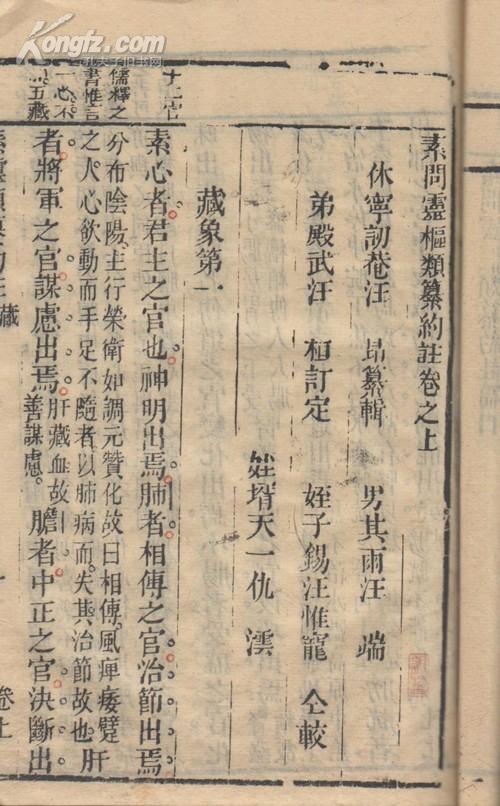 素問靈樞類纂約註卷之上
休寧訒菴汪 昂纂輯 男其雨汪 端
弟殿武汪 桓訂定 姪子錫汪惟寵 仝較
姪壻天一仇 澐
藏象第一
素心者君主之官也神明出焉肺者相傅之官治節出焉
分布陰陽主行榮衛如調元贊化故曰相傅風痺痿躄
之人心欲動而手足不隨者以肺病而失其治節故也
肝
者將軍之官謀慮出焉
肝藏血故
善謀慮
膽者中正之官決斷出
十二官
儒釋之
書惟言
一心不
五藏
卷上
Kongfz.com